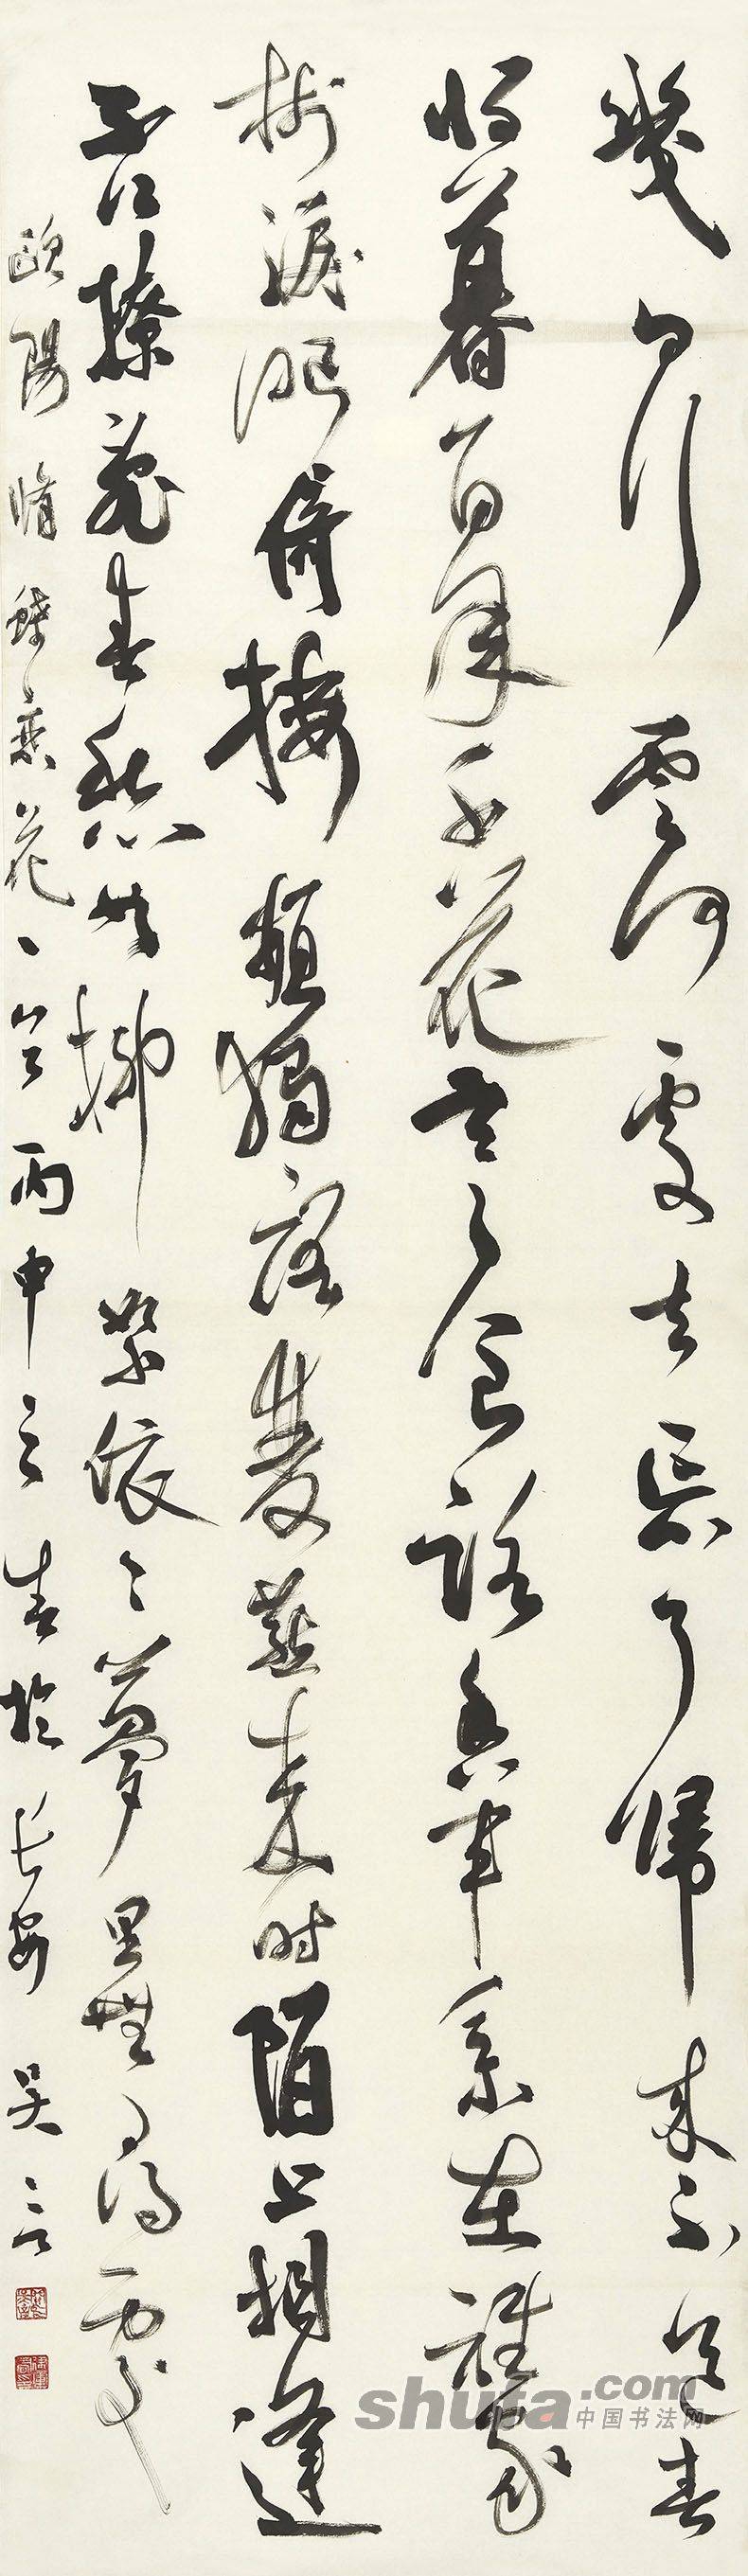 幾日行雲何處去忘了歸來不道春
將暮百草千花寒食路香車系在誰家
樹淚眼倚樓頻獨語雙燕來時陌上相逢
否撩亂春愁如柳絮依〻夢里無尋處
歐陽脩蝶戀花一首丙申之春於長安吴言
shufa.com
中国书法网